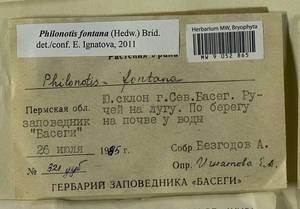 Philonotis fontana (Hedw.) Brid.
det./conf. E. Ignatova, 2011
Herbarium MW, Bryophyta
MW 9 052 865
Растения Урала
Philonotis fontana
Пермская обл.
заповедник
"Басеги"
Ю.склон г.Сев.Басег. Ру-
чей на лугу. По берегу
на почве у воды
26 июля 1985г.
Собр. Безгодов А.
№ 321
Опр. Игнатова Е.А.
ГЕРБАРИЙ ЗАПОВЕДНИКА «БАСЕГИ»